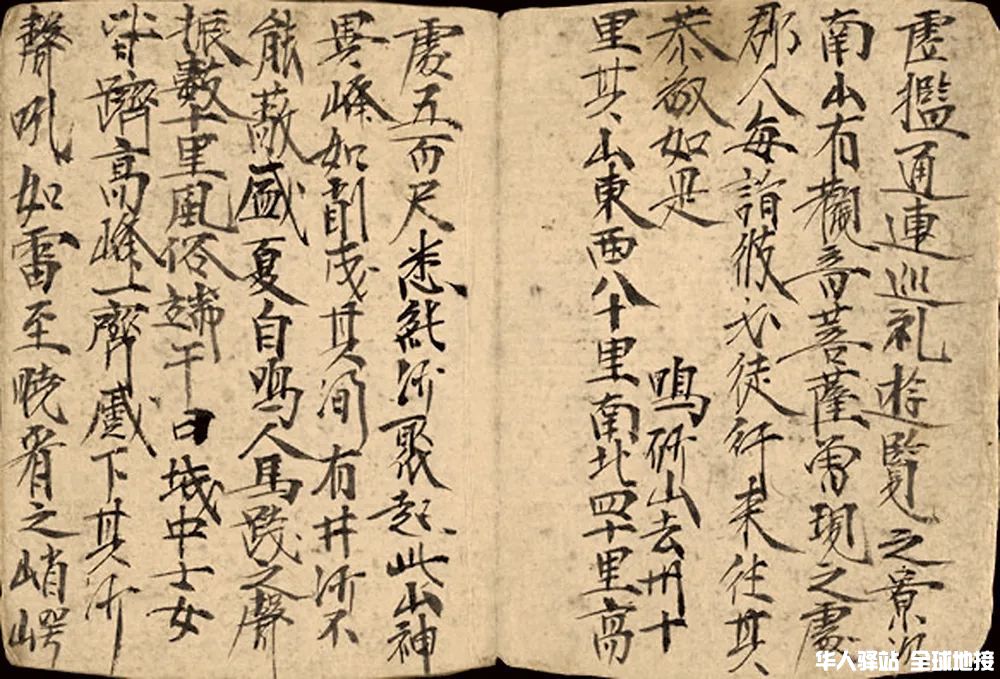 虛檻通連巡礼遊覽之景次
南山有觀音菩薩曾現之處
郡人每詣彼必徒行來往其
恭敬如是　鳴沙山去州十
里其山東西八十里南北四十里高
處五百尺悉純沙聚起此山神
異峰如削成其間有井沙不
能蔽盛夏自鳴人馬踐之聲
振數十里風俗端午日城中士女
皆躋高峰一齊蹙下其沙
聲吼如雷至曉看之峭崿
华人驿站 全球地接